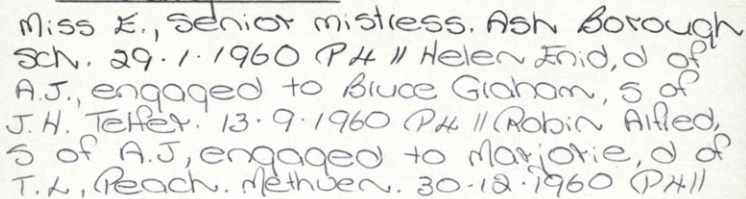 Miss E., senior mistress. Ash Borough
Sch. 29.1.1960 P4 || Helen Enid, d of
A.J., engaged to Bruce Graham, s of
J.H. Telfer. 13.9.1960 P4 || Robin Alfred,
s of A.J, engaged to Marjorie, d of
T.L, Peach. Methven. 30.12.1960 P4 ||